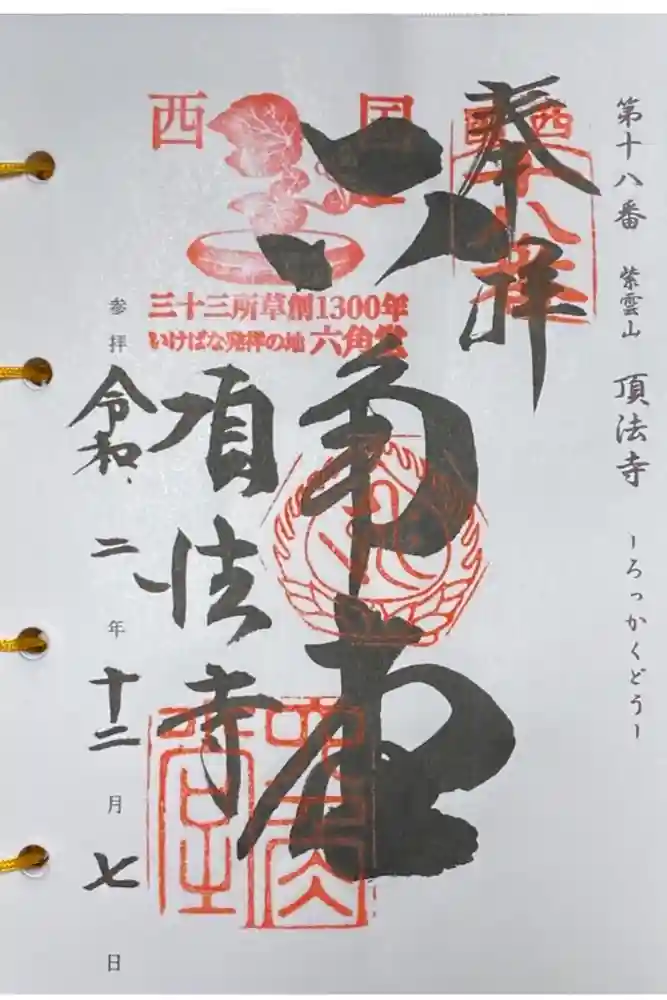 第十八番 紫雲山 頂法寺 ーろっかくどうー
奉拝
西国
十八番
六角堂
西国
三十三所草創1300年
いけばな発祥の地 六角堂
頂法寺
参拝 令和、二年十二月七日
六角堂